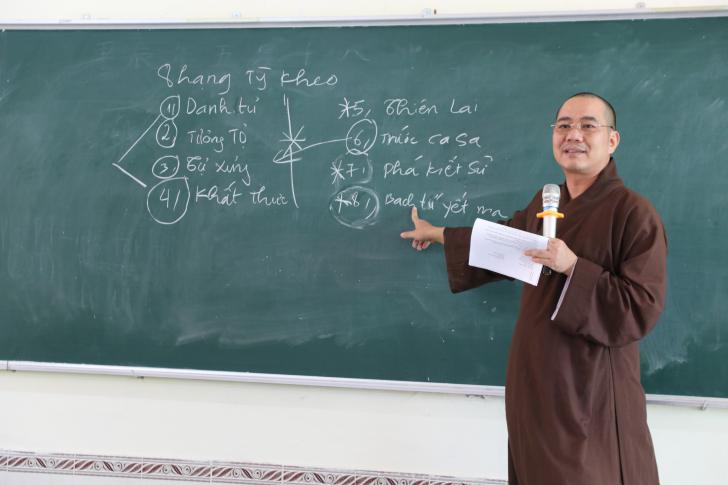 8 hạng Tỳ kheo
1) Danh tự
2) Tương Tợ
3) Tự xưng
4) Khất Thực
*5, Thiện Lai
6) Trước ca sa
*7) Phá Kiết Sử
*8) Bạch tứ yết ma